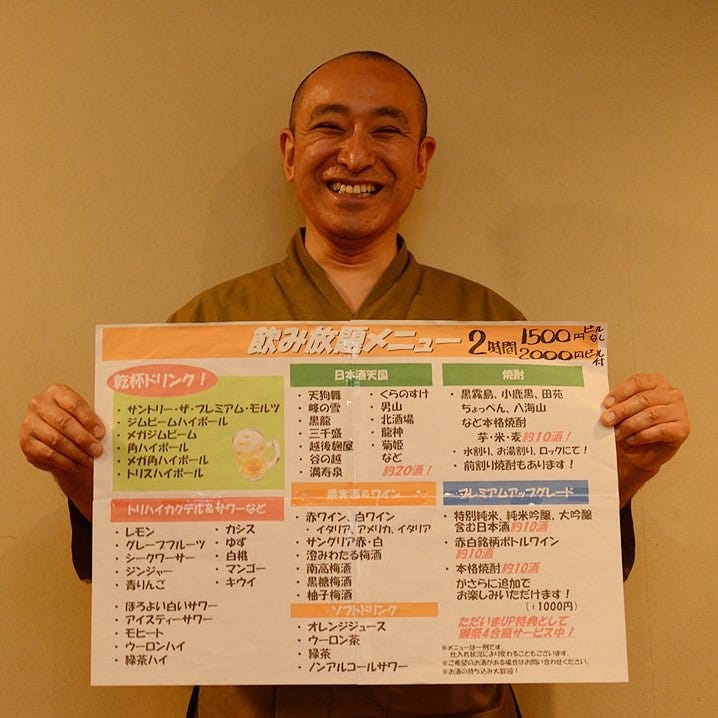 飲み放題メニュー 2時間 1500円 ビールなし
2000円 ビール付
乾杯ドリンク！
・サントリー・ザ・プレミアム・モルツ
・ジムビームハイボール
・メガジムビーム
・角ハイボール
・メガ角ハイボール
・トリスハイボール
トリハイカクテル＆サワーなど
・レモン
・グレープフルーツ
・シークワーサー
・ジンジャー
・青りんご
・カシス
・ゆず
・白桃
・マンゴー
・キウイ
・ほろよい白いサワー
・アイスティーサワー
・モヒート
・ウーロンハイ
・緑茶ハイ
日本酒天国
・天狗舞
・峰の雪
・黒龍
・三千盛
・越後麹屋
・谷の越
・満寿泉
・くらのすけ
・男山
・北酒場
・龍神
・菊姫
など
約20酒！
果実酒＆ワイン
・赤ワイン、白ワイン
・イタリア、アメリカ、イタリア
・サングリア赤・白
・澄みわたる梅酒
・南高梅酒
・黒糖梅酒
・柚子梅酒
ソフトドリンク
・オレンジジュース
・ウーロン茶
・緑茶
・ノンアルコールサワー
焼酎
・黒霧島、小鹿黒、田苑
ちょっぺん、八海山
など本格焼酎
芋・米・麦 約10酒！
・水割り、お湯割り、ロックにて！
・前割り焼酎もあります！
プレミアムアップグレード
・特別純米、純米吟醸、大吟醸
含む日本酒約10酒
・赤白銘柄ボトルワイン
約10酒
・本格焼酎約10酒
がさらに追加で
お楽しみいただけます！
（+1000円）
ただいまUP特典として
獺祭4合瓶サービス中！
※メニューは一例です。
仕入れ状況により変わることもございます。
※ご希望のお酒がある場合はお問い合わせください。
※お酒の持ち込み大歓迎！